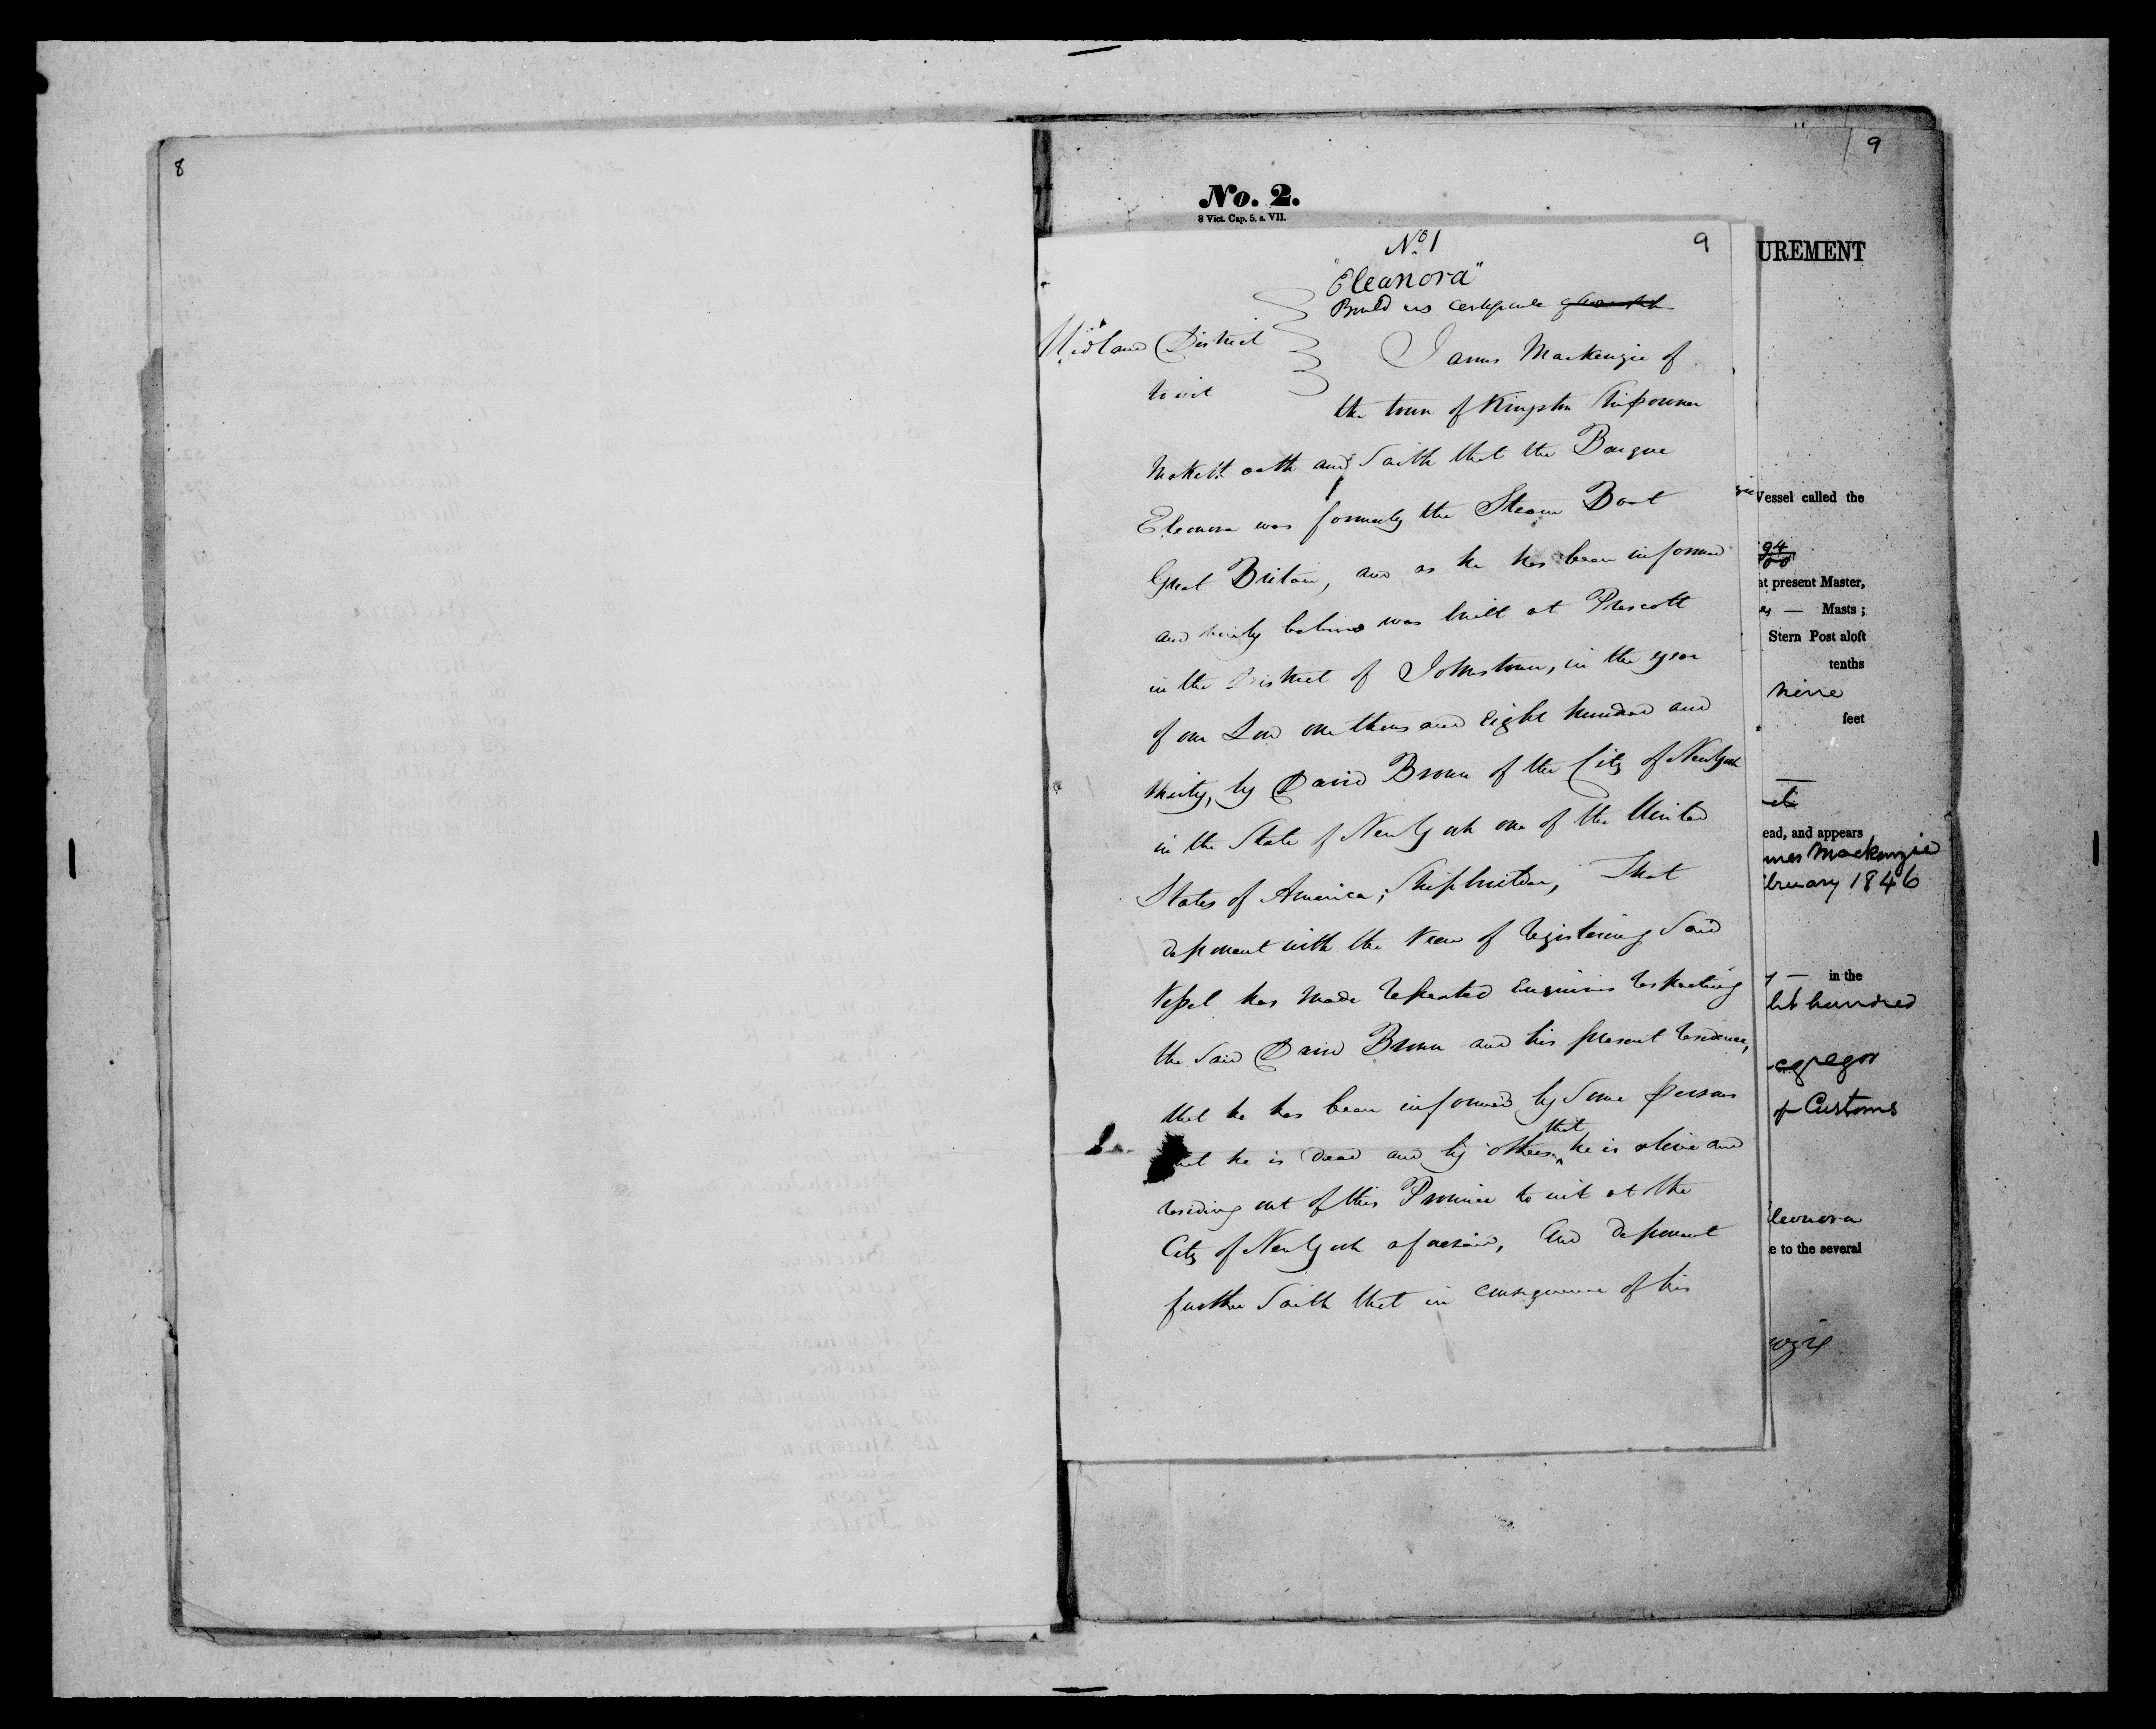 8
9
No. 2.
8 Vict. Cap. 5. s. VII.
UREMENT
No 1
9
"Eleanora"
Build rs certificate
Midland District
to wit
James Mackenzie of
the town of Kingston Shipowner
Maketh oath and Saith that the Barque
Eleonora was formerly the Steam Boat
Great Britain, and as he has been informed
and verily believes was built at Prescott
in the District of Johnstown, in the year
of our Lord one thousand Eight hundred and
thirty, by David Brown of the City of New York
in the State of New York one of the United
States of America, Shipbuilder, That
deponent with the View of registering Said
Vessel has Made repeated Enquiries respecting
the Said David Brown and his present residence,
that he has been informed by Some persons
that he is dead and by others that he is alive and
residing out of this Province to wit at the
City of New York aforesaid, And deponent
further Saith that in consequence of his
Vessel called the
94
at present Master,
— Masts ;
Stern Post aloft
tenths
nine
feet
ead, and appears
mes Mackenzie
bruary 1846
— in the
ht hundred
cgregor
of Customs
leonora
e to the several
nzie